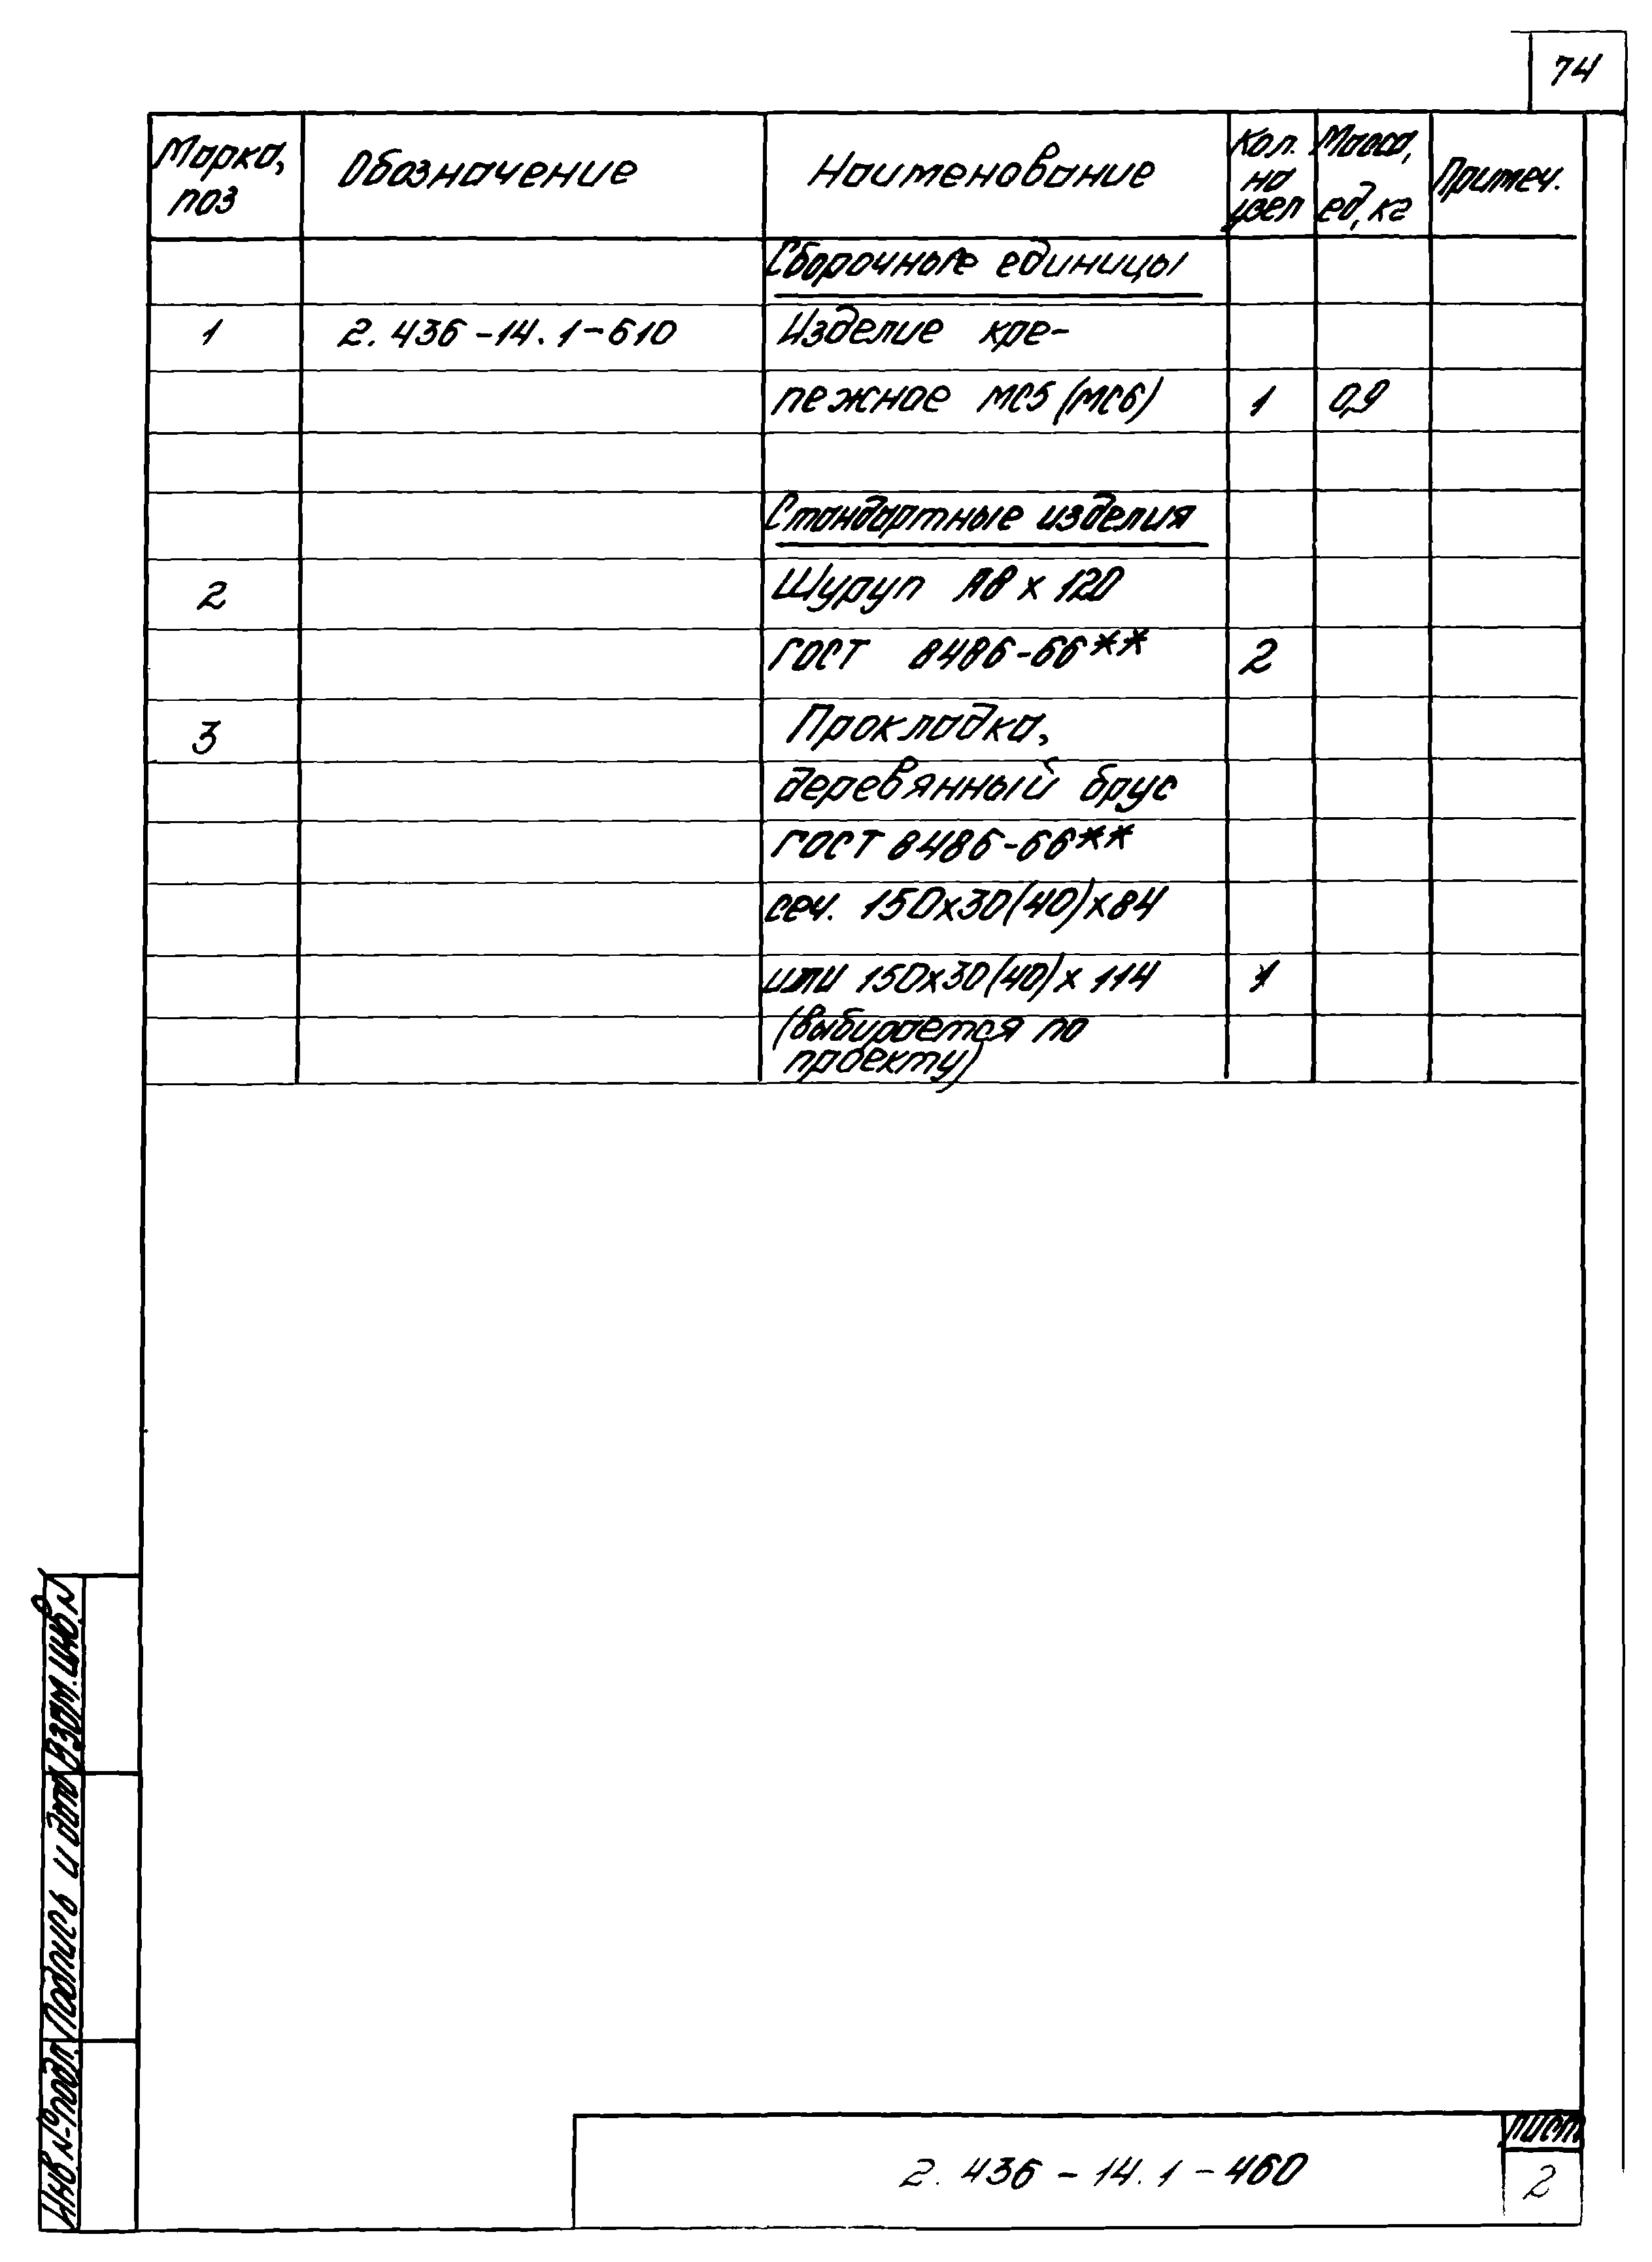 74
Марка, поз
Обозначение
Наименование
Кол. на узел
Масса, ед, кг
Примеч.
Сборочные единицы
1 2.436-14.1-610 Изделие кре-
пежное МС5 (МС6) 1 0,9
Стандартные изделия
2 Шуруп А8 х 120
ГОСТ 8486-66** 2
3 Прокладка,
деревянный брус
ГОСТ 8486-66**
сеч. 150х30(40)х84
или 150х30(40)х 114 1
(выбирается по
проекту)
Взам. инв N
Подпись и дата
Инв № подл.
2.436-14.1-460
Лист
2